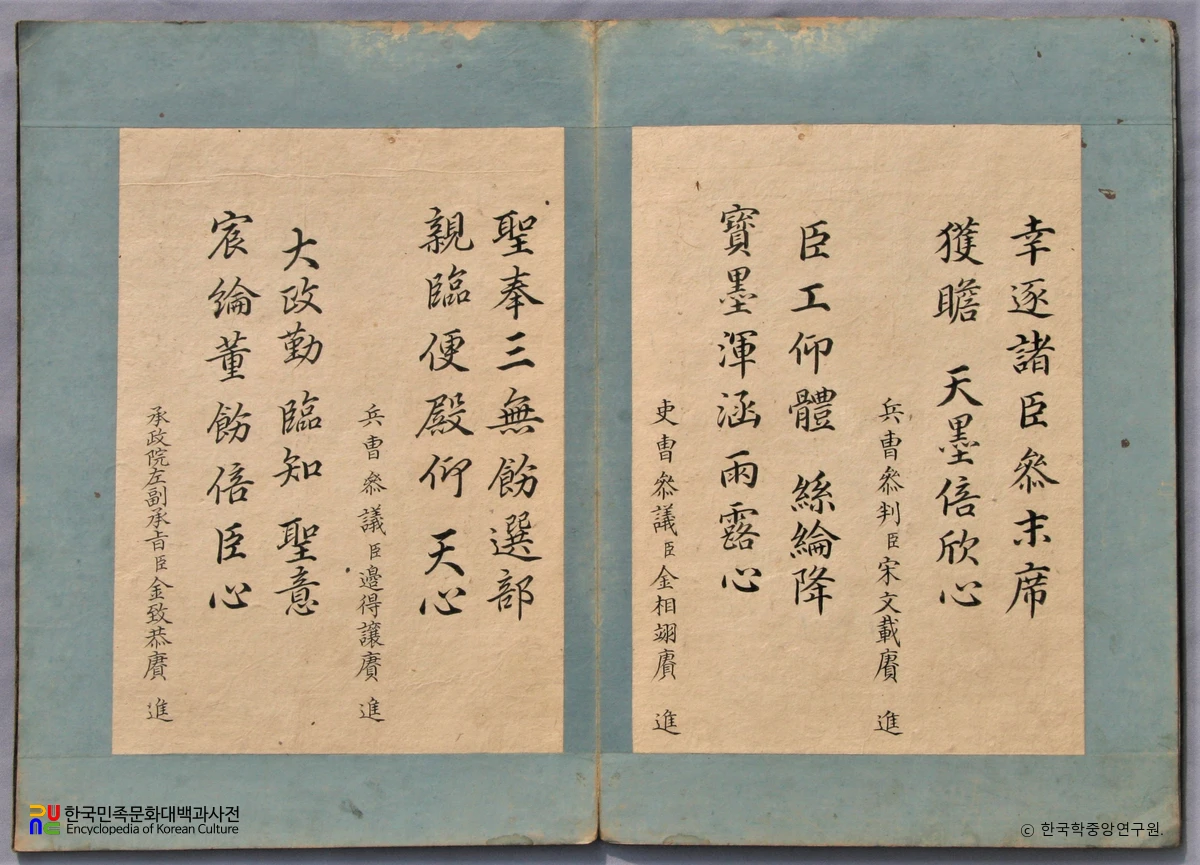 幸逐諸臣參末席
獲瞻 天墨倍欣心
兵曹參判臣宋文載賡 進
臣工仰體 絲綸降
寶墨渾涵雨露心
吏曹參議臣金相翊賡 進
聖奉三無飭選部
親臨便殿仰 天心
兵曹參議臣邊得讓賡 進
大政勤臨知 聖意
宸綸董飭倍臣心
承政院左副承旨臣金致恭賡 進
한국민족문화대백과사전
Encyclopedia of Korean Culture
© 한국학중앙연구원.